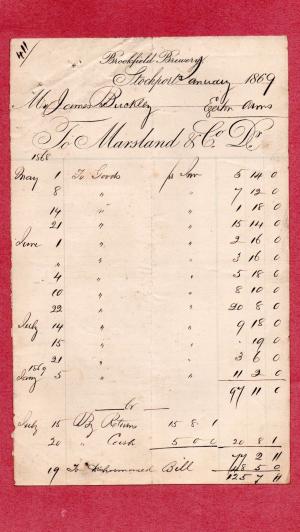 411
Brookfield Brewery
Stockport January 1869
Mr James Buckley Arms
To Marsland & Co Dr
1868
May 1 To Goods pr Inv 5 14 0
8 " " 7 12 0
14 " " 1 18 0
21 " " 15 14 0
June 1 " " 2 16 0
" " " 3 16 0
4 " " 5 18 0
10 " " 8 10 0
22 " " 20 8 0
July 14 " " 9 18 0
15 " " . 19 0
21 " " 3 6 0
1869
Jany 5 " " 11 2 0
97 11 0
Cr
July 15 By Returns 15 8 1
20 " Cash 5 0 0 20 8 1
77 2 11
19 To Bill 48 5 0
125 7 11